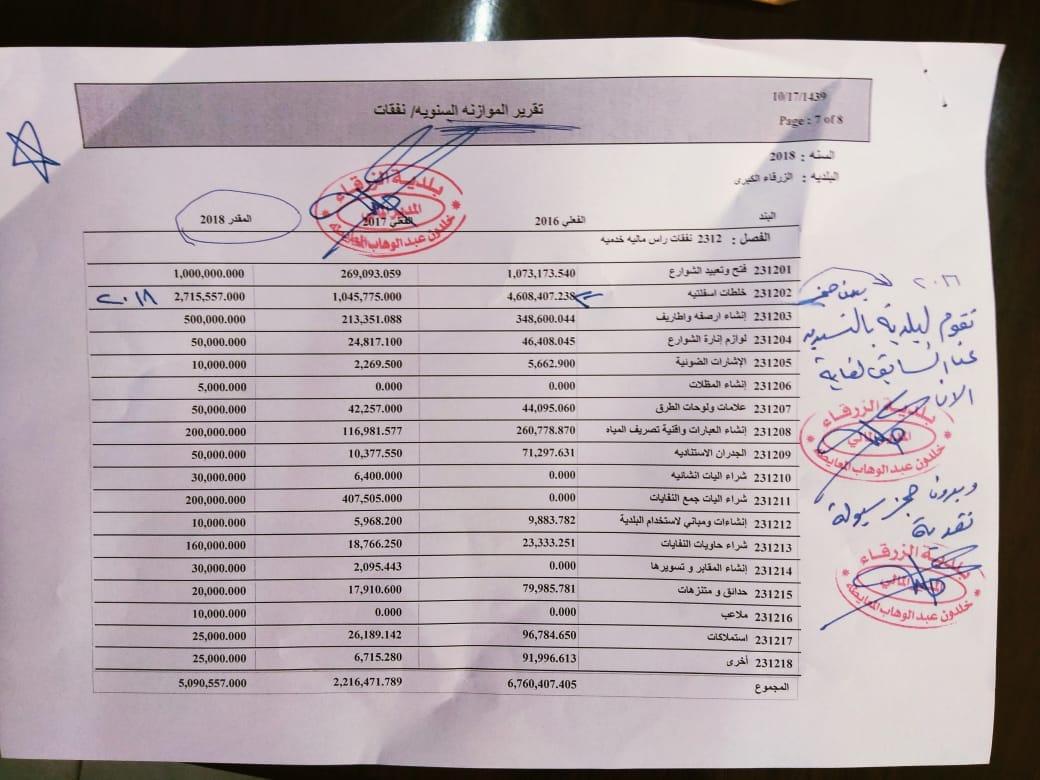 10/17/1439
تقرير الموازنه السنويه/ نفقات
Page : 7 of 8
السنه : 2018
البلديه : الزرقاء الكبرى
البند الفعلي 2016 الفعلي 2017 المقدر 2018
الفصل : 2312 نفقات راس ماليه خدميه
231201 فتح وتعبيد الشوارع 1,073,173.540 269,093.059 1,000,000.000
231202 خلطات اسفلتيه 4,608,407.238 1,045,775.000 2,715,557.000 ٢٠١٨
231203 إنشاء ارصفه واطاريف 348,600.044 213,351.088 500,000.000
231204 لوازم إنارة الشوارع 46,408.045 24,817.100 50,000.000
231205 الإشارات الضوئية 5,662.900 2,269.500 10,000.000
231206 إنشاء المظلات 0.000 0.000 5,000.000
231207 علامات ولوحات الطرق 44,095.060 42,257.000 50,000.000
231208 إنشاء العبارات واقنية تصريف المياه 260,778.870 116,981.577 200,000.000
231209 الجدران الاستناديه 71,297.631 10,377.550 50,000.000
231210 شراء اليات انشائيه 0.000 6,400.000 30,000.000
231211 شراء اليات جمع النفايات 0.000 407,505.000 200,000.000
231212 إنشاءات ومباني لاستخدام البلدية 9,883.782 5,968.200 10,000.000
231213 شراء حاويات النفايات 23,333.251 18,766.250 160,000.000
231214 إنشاء المقابر و تسويرها 0.000 2,095.443 30,000.000
231215 حدائق و متنزهات 79,985.781 17,910.600 20,000.000
231216 ملاعب 0.000 0.000 10,000.000
231217 استملاكات 96,784.650 26,189.142 25,000.000
231218 أخرى 91,996.613 6,715.280 25,000.000
المجموع 6,760,407.405 2,216,471.789 5,090,557.000
بلدية الزرقاء
المدير المالي
خلدون عبدالوهاب المعايطة
٢٠١٦
تقوم البلدية بالتسديد
عن السابق لغاية
الان
بلدية الزرقاء
المدير المالي
خلدون عبدالوهاب المعايطة
وبدون حجز سيولة
نقدية
بلدية الزرقاء
المدير المالي
خلدون عبدالوهاب المعايطة